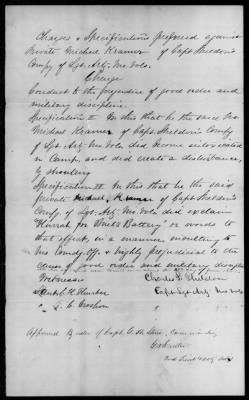 Charges & Specifications preferred against
Private Michael Kramer of Capt Sheldon's
Compy of Lgt. Art. Mo. Vols.
Charge
Conduct to the prejudice of good order and
military discipline
Specification I In this that he the said
Michael Kramer of Capt. Sheldon's Compy
of Lgt. Art. Mo. Vols did become intoxicated
in Camp, and did create a disturbance,
by shouting
Specification II In this that he the said
private Michael Kramer of Capt Sheldon's
Compy of Lgt. Art. Mo. Vols did exclaim
"Hurrah for Battery" or words to
that effect, in a manner, insulting to
his Comdg. Off. & highly prejudicial to the
of good order and military
Witnesses Charles Sheldon
Capt. Lgt. Art. Mo. Vols
Approved By order of Capt. Stone, Commanding